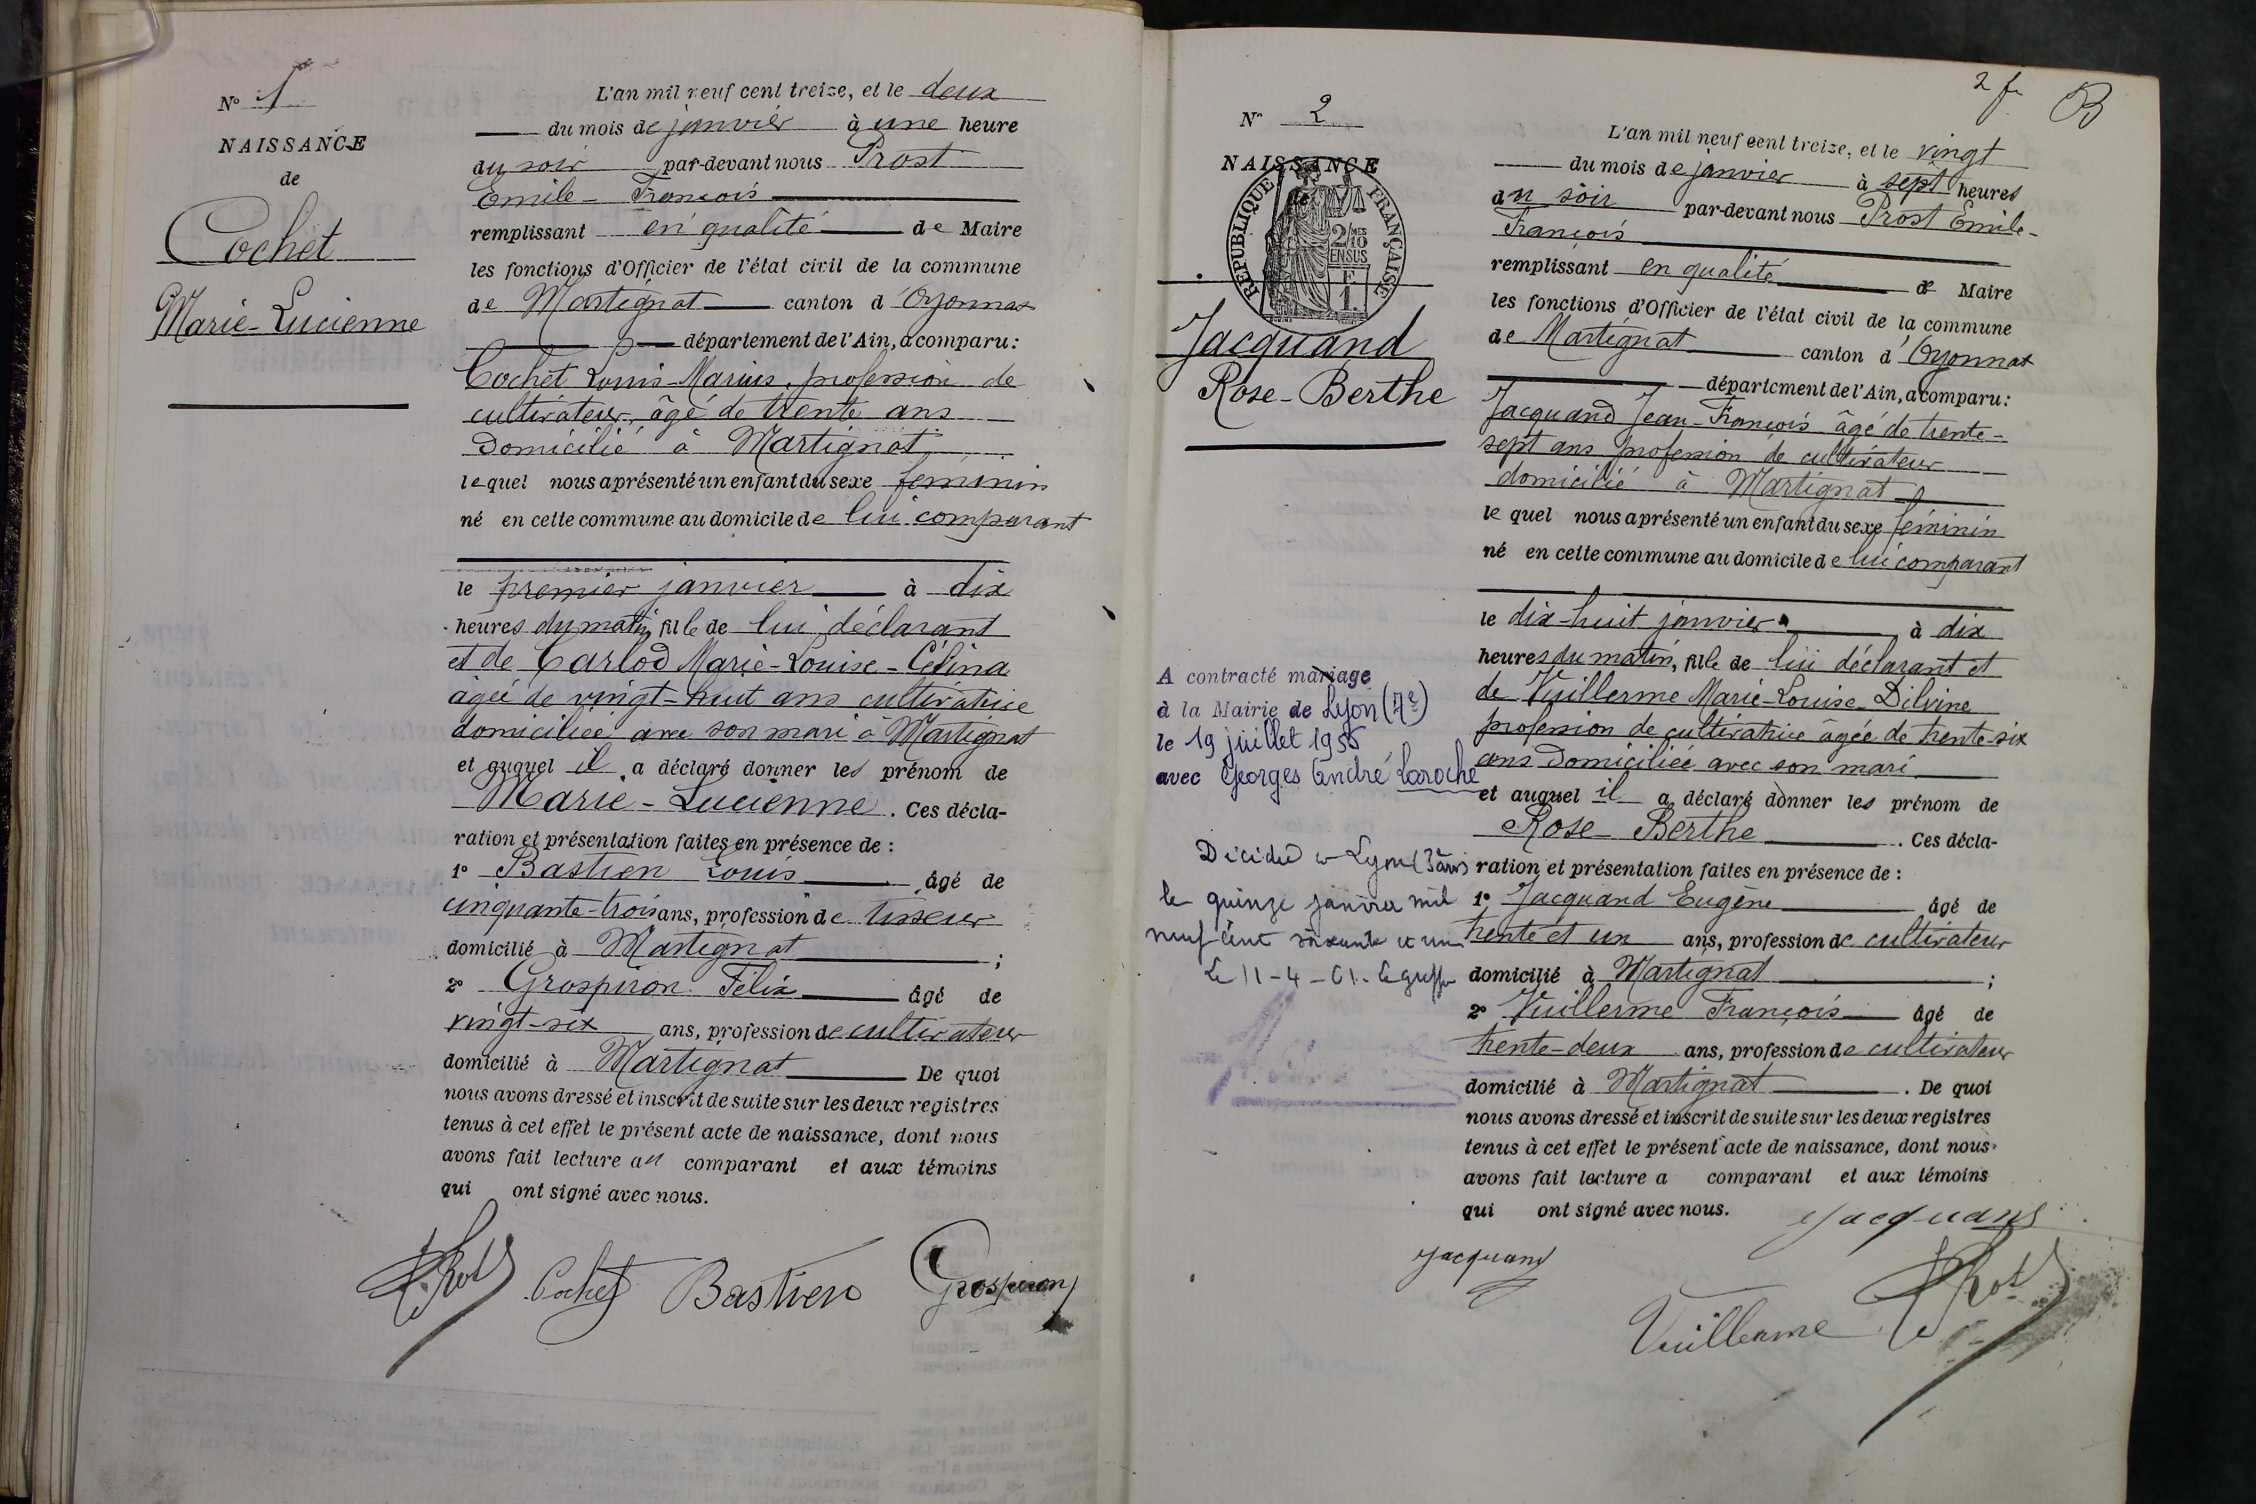 N° 1
NAISSANCE
de
Cochet
Marie-Lucienne
L'an mil neuf cent treize, et le deux
du mois de janvier à une heure
du soir par-devant nous Prost
Emile-François
remplissant en qualité de Maire
les fonctions d'Officier de l'état civil de la commune
de Martignat canton d'Oyonnax
département de l'Ain, a comparu :
Cochet Louis-Marius, profession de
cultivateur, âgé de trente ans
domicilié à Martignat
lequel nous a présenté un enfant du sexe féminin
né en cette commune au domicile de lui comparant
le premier janvier à dix
heures du matin, fille de lui déclarant
et de Carlod Marie-Louise-Célina
âgée de vingt-huit ans cultivatrice
domiciliée avec son mari à Martignat
et auquel il a déclaré donner les prénom de
Marie-Lucienne. Ces décla-
ration et présentation faites en présence de :
1° Bastien Louis âgé de
cinquante-trois ans, profession de tisseur
domicilié à Martignat ;
2° Grospiron Félix âgé de
vingt-six ans, profession de cultivateur
domicilié à Martignat De quoi
nous avons dressé et inscrit de suite sur les deux registres
tenus à cet effet le présent acte de naissance, dont nous
avons fait lecture au comparant et aux témoins
qui ont signé avec nous.
Prost Cochet Bastien Grospiron
2 f. B
N° 2
NAISSANCE
de
REPUBLIQUE FRANÇAISE
2/10
EN SUS
E
1.
Jacquand
Rose-Berthe
L'an mil neuf cent treize, et le vingt
du mois de janvier à sept heures
du soir par-devant nous Prost Emile-
François
remplissant en qualité de Maire
les fonctions d'Officier de l'état civil de la commune
de Martignat canton d'Oyonnax
département de l'Ain, a comparu :
Jacquand Jean-François âgé de trente-
sept ans profession de cultivateur
domicilié à Martignat
lequel nous a présenté un enfant du sexe féminin
né en cette commune au domicile de lui comparant
le dix-huit janvier à dix
heures du matin, fille de lui déclarant et
de Vuillerme Marie-Louise-Dilvine
profession de cultivatrice âgée de trente-six
ans domiciliée avec son mari
et auquel il a déclaré donner les prénom de
Rose Berthe. Ces décla-
ration et présentation faites en présence de :
1° Jacquand Eugène âgé de
trente et un ans, profession de cultivateur
domicilié à Martignat ;
2° Vuillerme François âgé de
trente-deux ans, profession de cultivateur
domicilié à Martignat. De quoi
nous avons dressé et inscrit de suite sur les deux registres
tenus à cet effet le présent acte de naissance, dont nous
avons fait lecture a comparant et aux témoins
qui ont signé avec nous.
Jacquand
Jacquand
Vuillerme Prost
A contracté mariage
à la Mairie de Lyon (7e)
le 19 juillet 1955
avec Georges André Laroche
Décédée à Lyon (3 arr)
le quinze janvier mil
neuf cent soixante et un
Le 11-4-61.